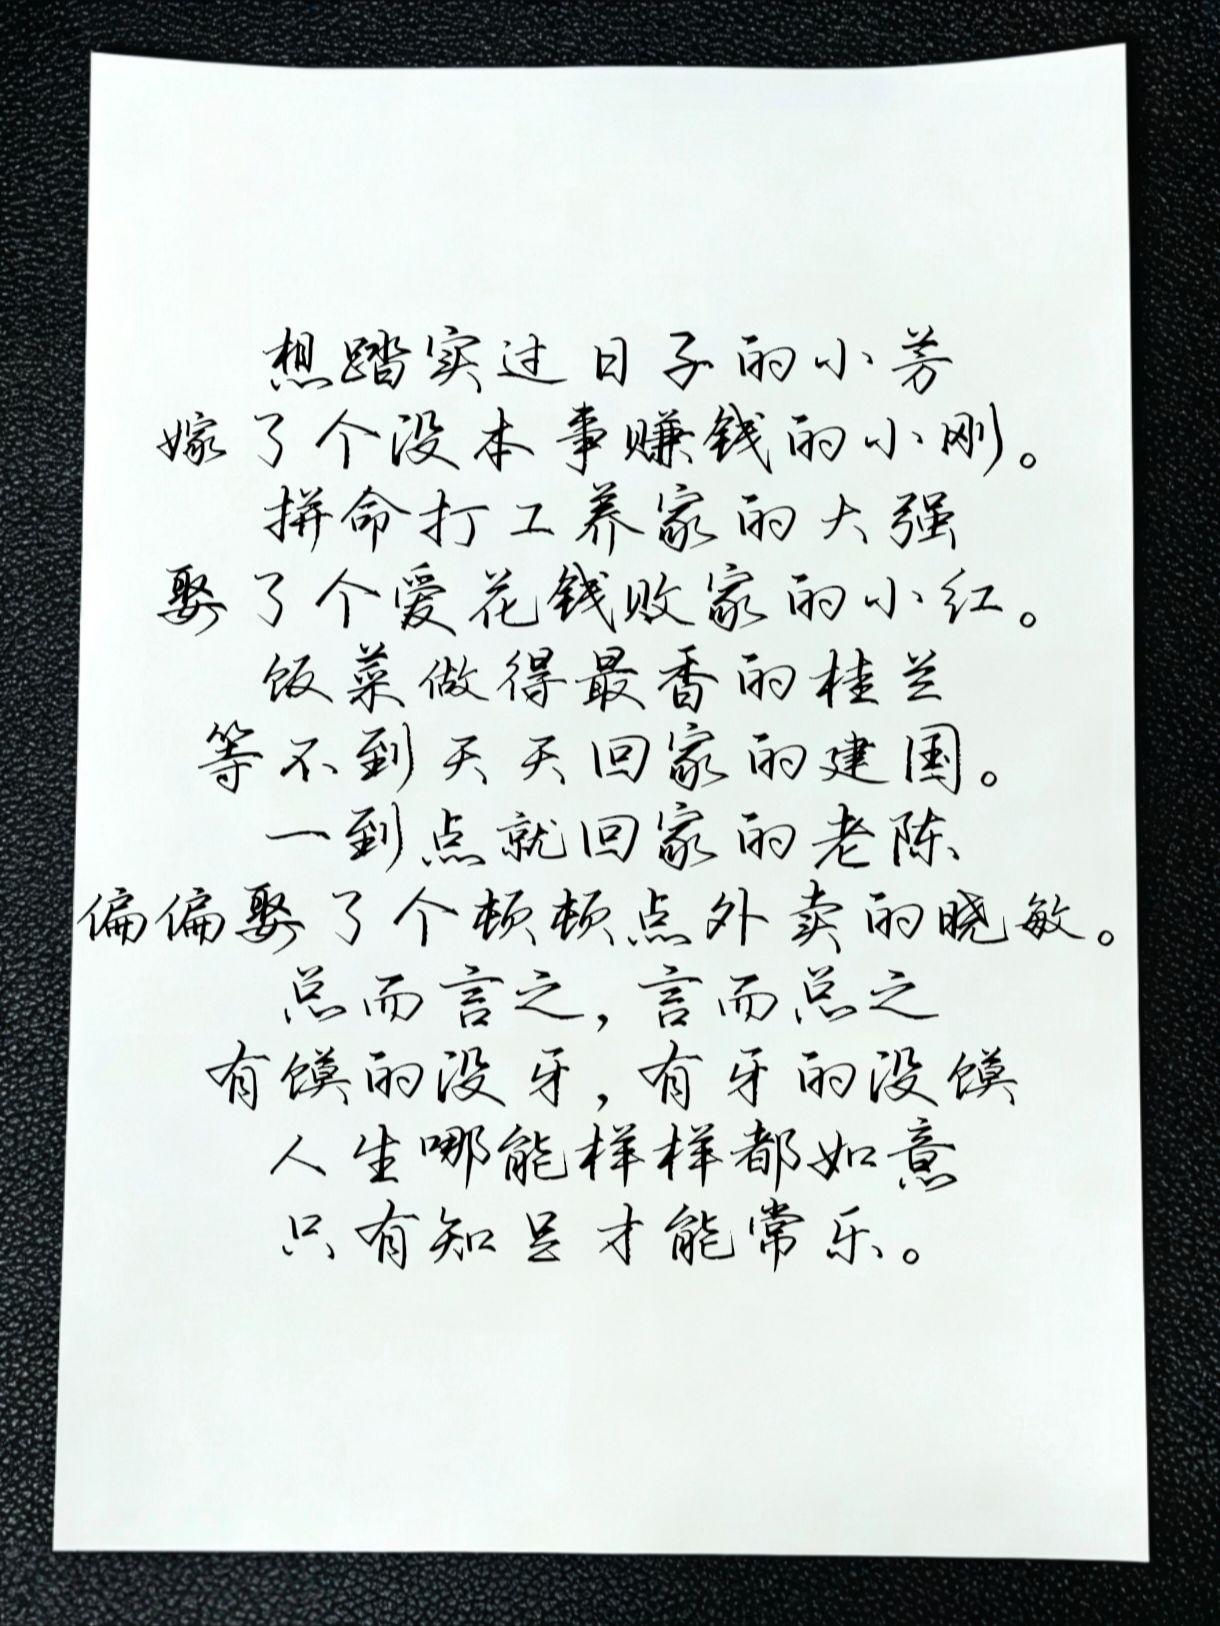 想踏实过日子的小芳
嫁了个没本事赚钱的小刚。
拼命打工养家的大强
娶了个爱花钱败家的小红。
饭菜做得最香的桂兰
等不到天天回家的建国。
一到点就回家的老陈
偏偏娶了个顿顿点外卖的晓敏。
总而言之,言而总之
有馍的没牙,有牙的没馍
人生哪能样样都如意
只有知足才能常乐。